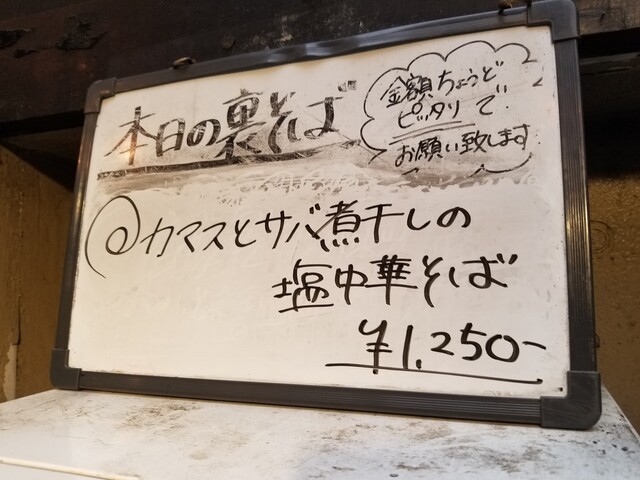 本日の裏そば
金額ちょうど
ピッタリで
お願い致します
@カマスとサバ煮干しの
塩中華そば
¥1,250-